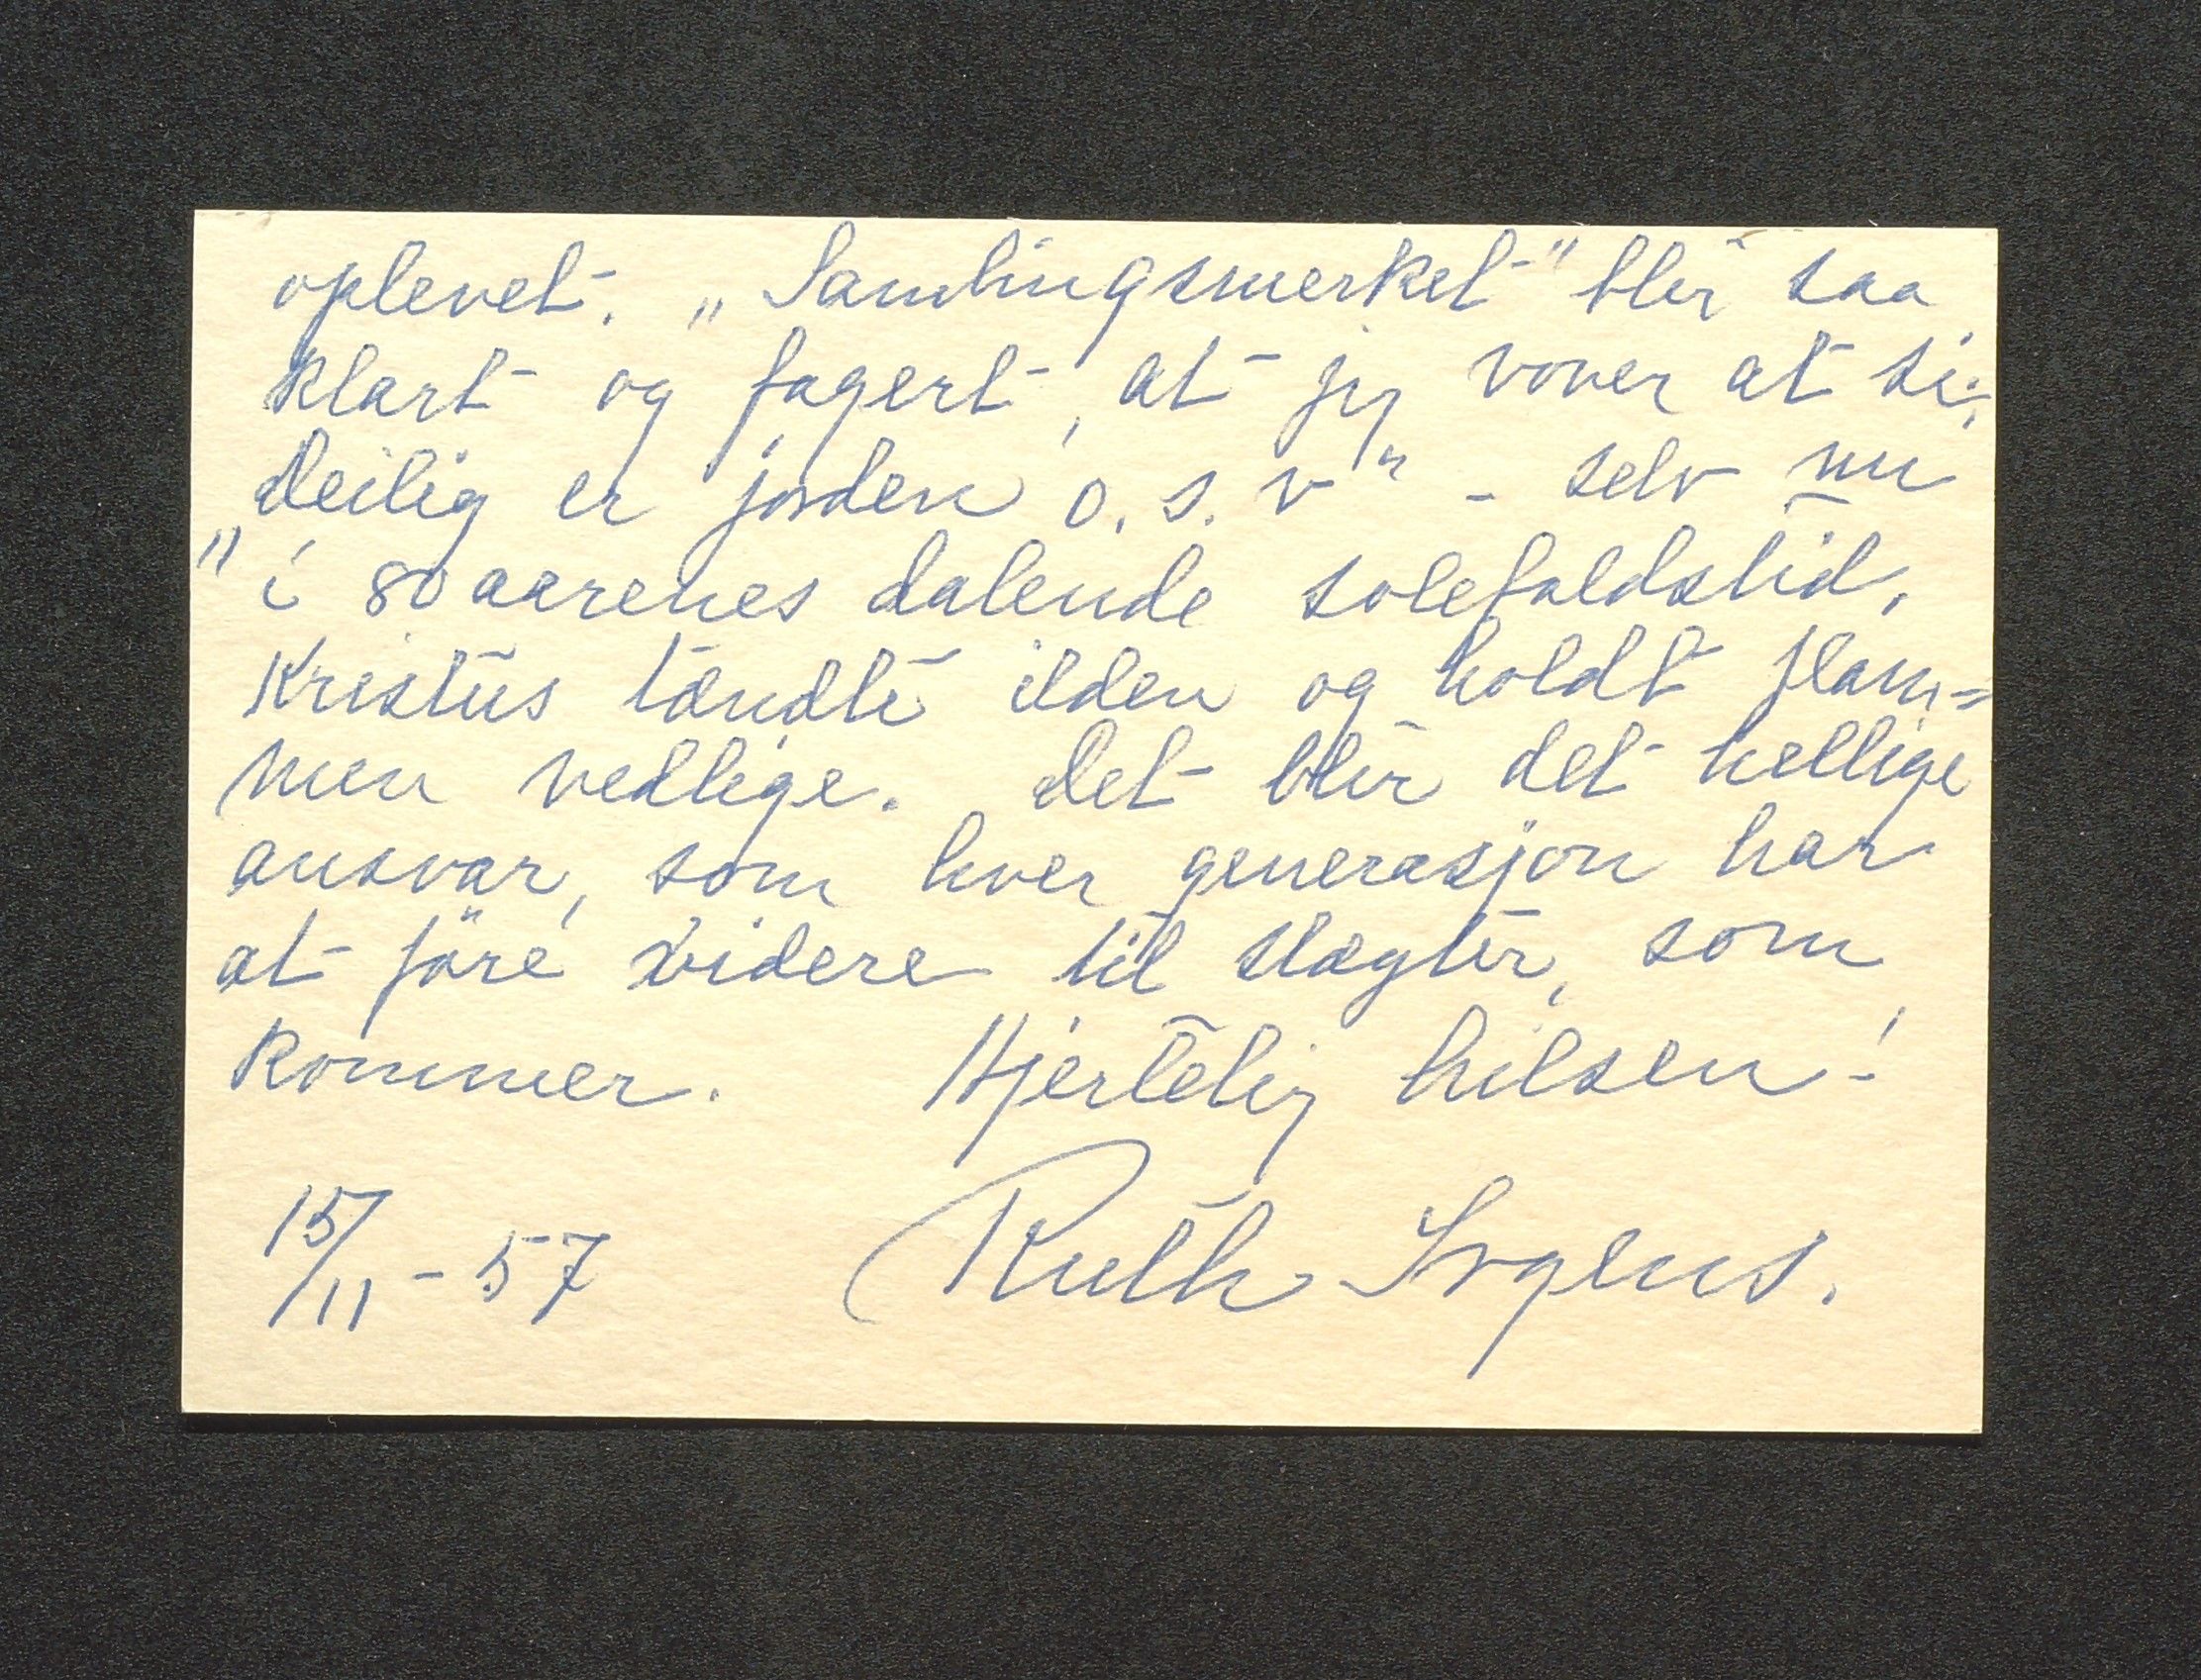 oplevet. „Samlingsmerket" blir saa
klart og fagert, at jeg vover at si:
„Deilig er jorden o.s.v" - selv nu
i 80 aarenes dalende solefaldstid.
Kristus tændte ilden og holdt flam=
men vedlige. Det blir det hellige
ansvar, som hver generasjon har
at före videre til slægter, som
kommer. Hjertelig hilsen!
15/11-57 Ruth Irgens.